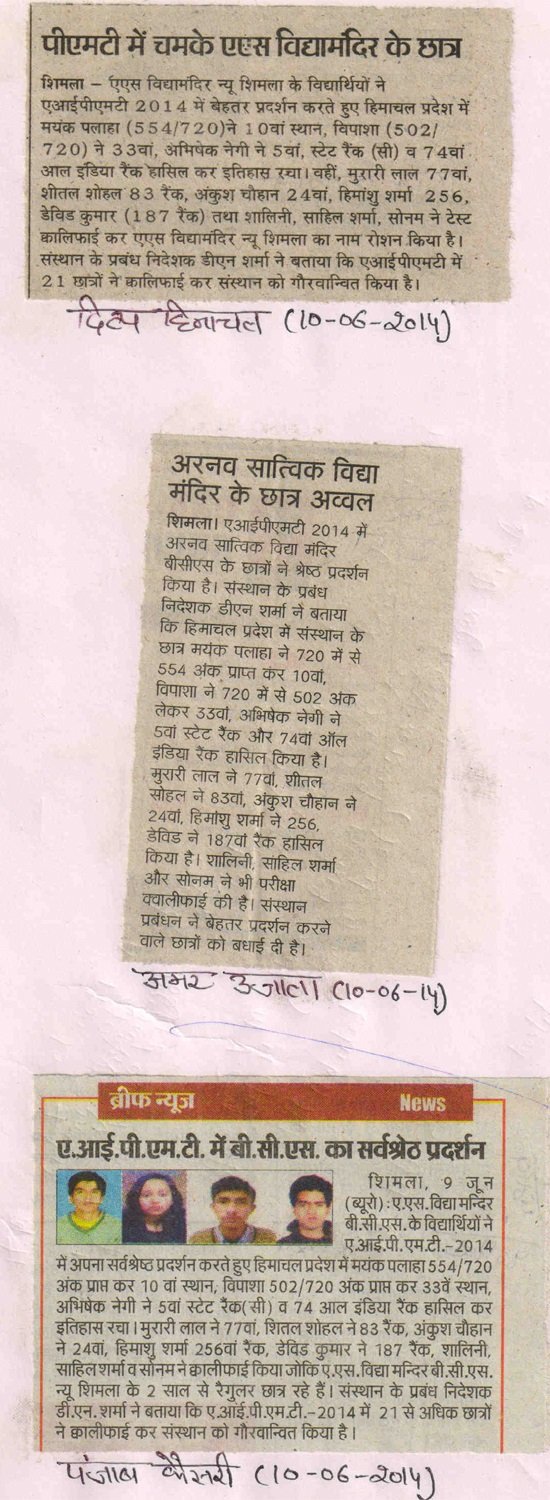 पीएमटी में चमके एएस विद्यामंदिर के छात्र
शिमला – एएस विद्यामंदिर न्यू शिमला के विद्यार्थियों ने
एआईपीएमटी 2014 में बेहतर प्रदर्शन करते हुए हिमाचल प्रदेश में
मयंक पलाहा (554/720)ने 10वां स्थान, विपाशा (502/
720) ने 33वां, अभिषेक नेगी ने 5वां, स्टेट रैंक (सी) व 74वां
आल इंडिया रैंक हासिल कर इतिहास रचा। वहीं, मुरारी लाल 77वां,
शीतल शोहल 83 रैंक, अंकुश चौहान 24वां, हिमांशु शर्मा 256,
डेविड कुमार (187 रैंक) तथा शालिनी, साहिल शर्मा, सोनम ने टेस्ट
क्वालिफाई कर एएस विद्यामंदिर न्यू शिमला का नाम रोशन किया है।
संस्थान के प्रबंध निदेशक डीएन शर्मा ने बताया कि एआईपीएमटी में
21 छात्रों ने क्वालिफाई कर संस्थान को गौरवान्वित किया है।
दिव्य हिमाचल (10-06-2014)
अरनव सात्विक विद्या
मंदिर के छात्र अव्वल
शिमला। एआईपीएमटी 2014 में
अरनव सात्विक विद्या मंदिर
बीसीएस के छात्रों ने श्रेष्ठ प्रदर्शन
किया है। संस्थान के प्रबंध
निदेशक डीएन शर्मा ने बताया
कि हिमाचल प्रदेश में संस्थान के
छात्र मयंक पलाहा ने 720 में से
554 अंक प्राप्त कर 10वां,
विपाशा ने 720 में से 502 अंक
लेकर 33वां, अभिषेक नेगी ने
5वां स्टेट रैंक और 74वां ऑल
इंडिया रैंक हासिल किया है।
मुरारी लाल ने 77वां, शीतल
सोहल ने 83वां, अंकुश चौहान ने
24वां, हिमांशु शर्मा ने 256,
डेविड ने 187वां रैंक हासिल
किया है। शालिनी, साहिल शर्मा
और सोनम ने भी परीक्षा
क्वालीफाई की है। संस्थान
प्रबंधन ने बेहतर प्रदर्शन करने
वाले छात्रों को बधाई दी है।
अमर उजाला (10-06-14)
ब्रीफ न्यूज News
ए.आई.पी.एम.टी. में बी.सी.एस. का सर्वश्रेष्ठ प्रदर्शन
शिमला, 9 जून
(ब्यूरो) : ए.एस. विद्या मन्दिर
बी.सी.एस. के विद्यार्थियों ने
ए.आई.पी.एम.टी.-2014
में अपना सर्वश्रेष्ठ प्रदर्शन करते हुए हिमाचल प्रदेश में मयंक पलाहा 554/720
अंक प्राप्त कर 10 वां स्थान, विपाशा 502/720 अंक प्राप्त कर 33वें स्थान,
अभिषेक नेगी ने 5वां स्टेट रैंक(सी) व 74 आल इंडिया रैंक हासिल कर
इतिहास रचा। मुरारी लाल ने 77वां, शितल शोहल ने 83 रैंक, अंकुश चौहान
ने 24वां, हिमाशु शर्मा 256वां रैंक, डेविड कुमार ने 187 रैंक, शालिनी,
साहिल शर्मा व सोनम ने क्वालीफाई किया जोकि ए.एस. विद्या मन्दिर बी.सी.एस.
न्यू शिमला के 2 साल से रैगुलर छात्र रहे हैं। संस्थान के प्रबंध निदेशक
डी.एन. शर्मा ने बताया कि ए.आई.पी.एम.टी.-2014 में 21 से अधिक छात्रों
ने क्वालीफाई कर संस्थान को गौरवान्वित किया है।
पंजाब केसरी (10-06-2014)